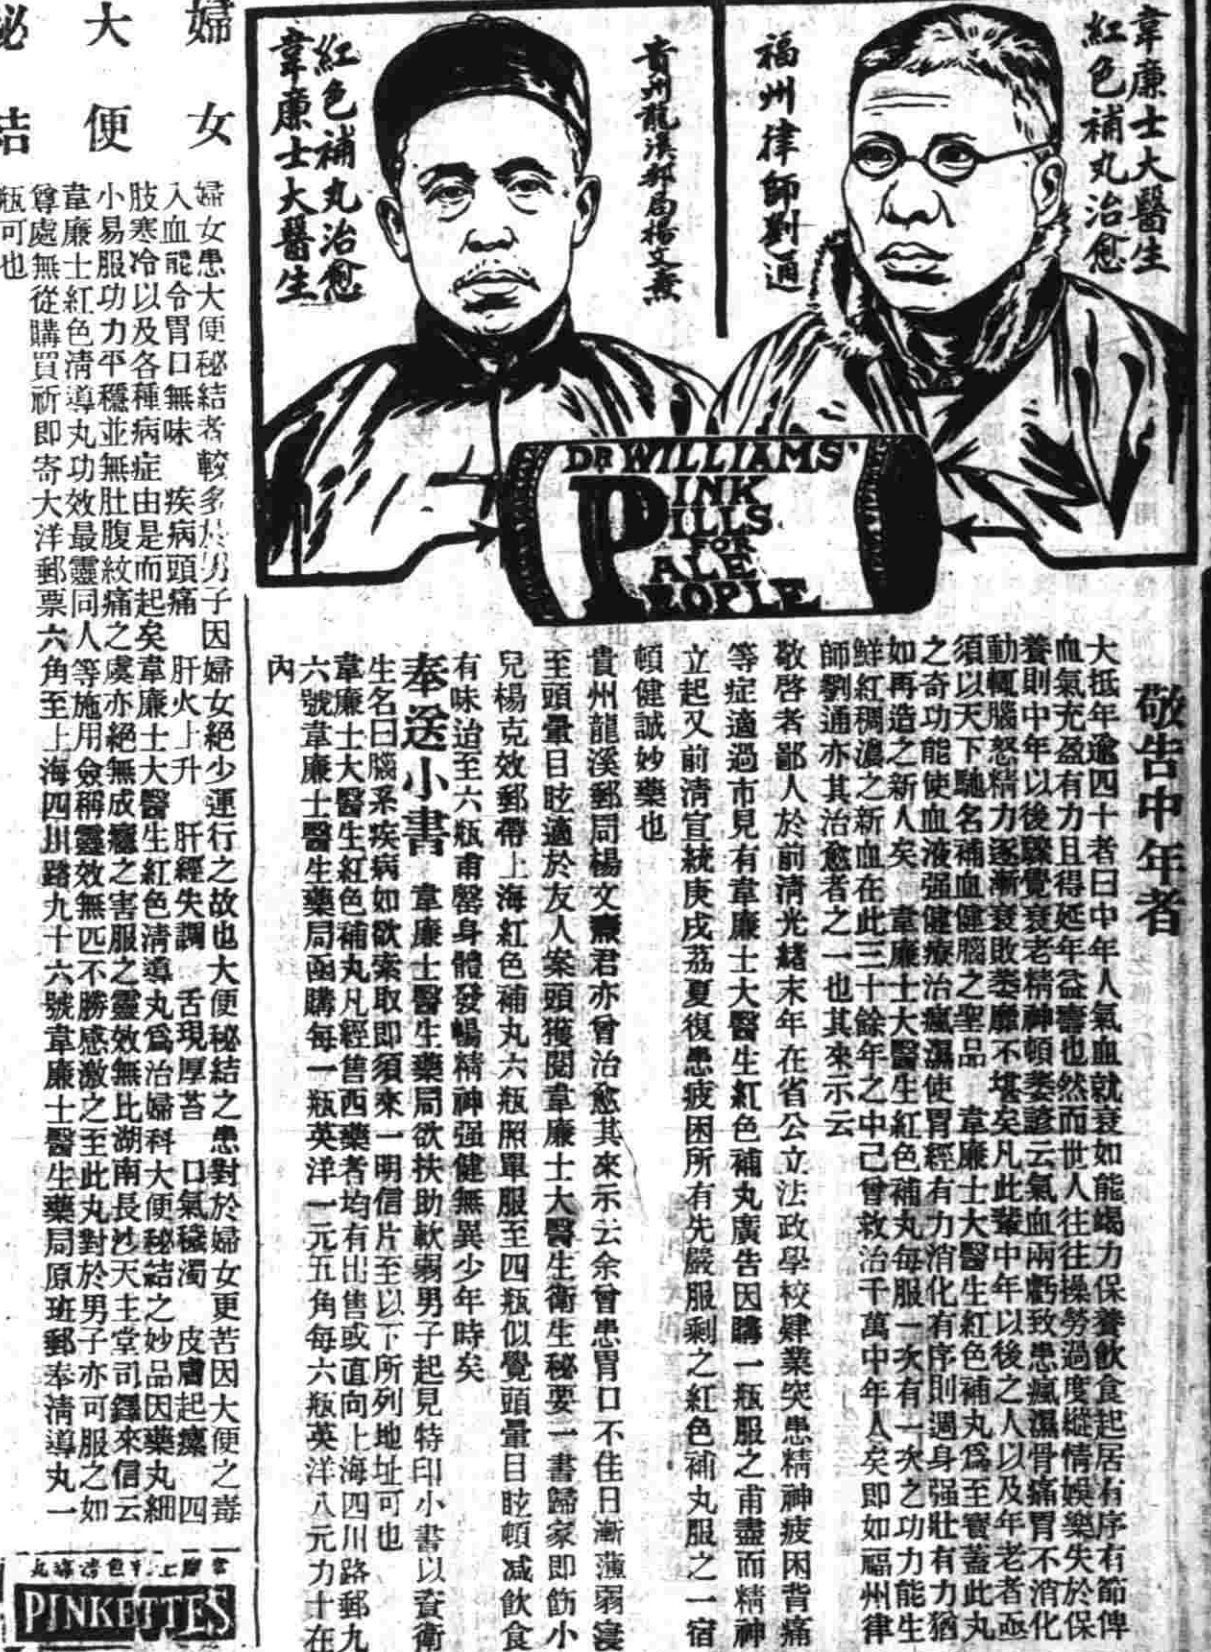 韋廉士大醫生
紅色補丸治愈
福州律師劉通
貴州龍溪郵局楊文燾
紅色補丸治愈
韋廉士大醫生
DR WILLIAMS'
PINK
PILLS
FOR
PALE
PEOPLE
敬告中年者
大抵年逾四十者曰中年人氣血就衰如能竭力保養飲食起居有序有節俾
血氣充盈有力且得延年益壽也然而世人往往操勞過度縱情娛樂失於保
養則中年以後驟覺衰老精神頓萎諺云氣血兩虧致患瘋濕骨痛胃不消化
動輒腦怒精力逐漸衰敗萎靡不堪矣凡此輩中年以後之人以及年老者亟
須以天下馳名補血健腦之聖品 韋廉士大醫生紅色補丸爲至寳蓋此丸
之奇功能使血液强健療治瘋濕使胃經有力消化有序則週身强壯有力猶
如再造之新人矣 韋廉士大醫生紅色補丸每服一次有一次之功力能生
鮮紅稠濃之新血在此三十餘年之中已曾救治千萬中年人矣即如福州律
師劉通亦其治愈者之一也其來示云
敬啓者鄙人於前淸光緒末年在省公立法政學校肄業突患精神疲困背痛
等症適過市見有韋廉士大醫生紅色補丸廣告因購一瓶服之甫盡而精神
立起又前淸宣統庚戌茘夏復患疲困所有先嚴服剩之紅色補丸服之一宿
頓健誠妙藥也
貴州龍溪郵局楊文燾君亦曾治愈其來示云余曾患胃口不佳日漸薄弱寖
至頭暈目眩適於友人案頭獲閱韋廉士大醫生衛生秘要一書歸家即飭小
兒楊克效郵帶上海紅色補丸六瓶照單服至四瓶似覺頭暈目眩頓减飲食
有味迨至六瓶甫罄身體發暢精神强健無異少年時矣
奉送小書 韋廉士醫生藥局欲扶助軟弱男子起見特印小書以資衛
生名曰腦系疾病如欲索取即須來一明信片至以下所列地址可也
韋廉士大醫生紅色補丸凡經售西藥者均有出售或直向上海四川路九
六號韋廉士醫生藥局函購每一瓶英洋一元五角每六瓶英洋八元郵力在
內
婦女
大便
秘結
婦女患大便秘結者較多於男子因婦女絕少運行之故也大便秘結之患對於婦女更苦因大便之毒
入血能令胃口無味 疾病頭痛 肝火上升 肝經失調 舌現厚苔 口氣穢濁 皮膚起瘰 四
肢寒冷以及各種病症由是而起矣韋廉士大醫生紅色淸導丸爲治婦科大便秘結之妙品因藥丸細
小易服功力平穩並無肚腹絞痛之虞亦絕無成癮之害服之靈效無比湖南長沙天主堂司鐸來信云
韋廉士紅色淸導丸功效最靈同人等施用僉稱靈效無匹不勝感激之至此丸對於男子亦可服之如
尊處無從購買祈即寄大洋郵票六角至上海四川路九十六號韋廉士醫生藥局原班郵奉淸導丸一
瓶可也
PINKETTES